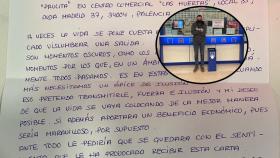 "PAULITA" EN CENTRO COMERCIAL "LAS HUERTAS", LOCAL
AVDA MADRID 37, 34004, PALENCIA
A VECES LA VIDA SE PONE CUESTA
CADO VISLUMBRAR UNA SALIDA
SON MOMENTOS OSCUROS, COMO LOS
MOMENTOS POR LOS QUE, EN UN ÁMBI
MENTE TODOS PASAMOS. ES EN ESTOS
MÁS NECESITAMOS UN ÁPICE DE ILUSIÓN
ESO PRETENDO TRANSMITIRLE, FUERZA E ILUSIÓN Y MI DESEO
DE QUE LA VIDA SE VAYA COLOCANDO DE LA MEJOR MANERA
POSIBLE. SI ADEMÁS APORTARA UN BENEFICIO ECONÓMICO, PUES
SERÍA MARAVILLOSO, POR SUPUESTO
ANTE TODO LE PEDIRÍA QUE SE QUEDARA CON EL SENTI-
QUE LE HA PRODUCIDO RECIBIR ESTA CARTA